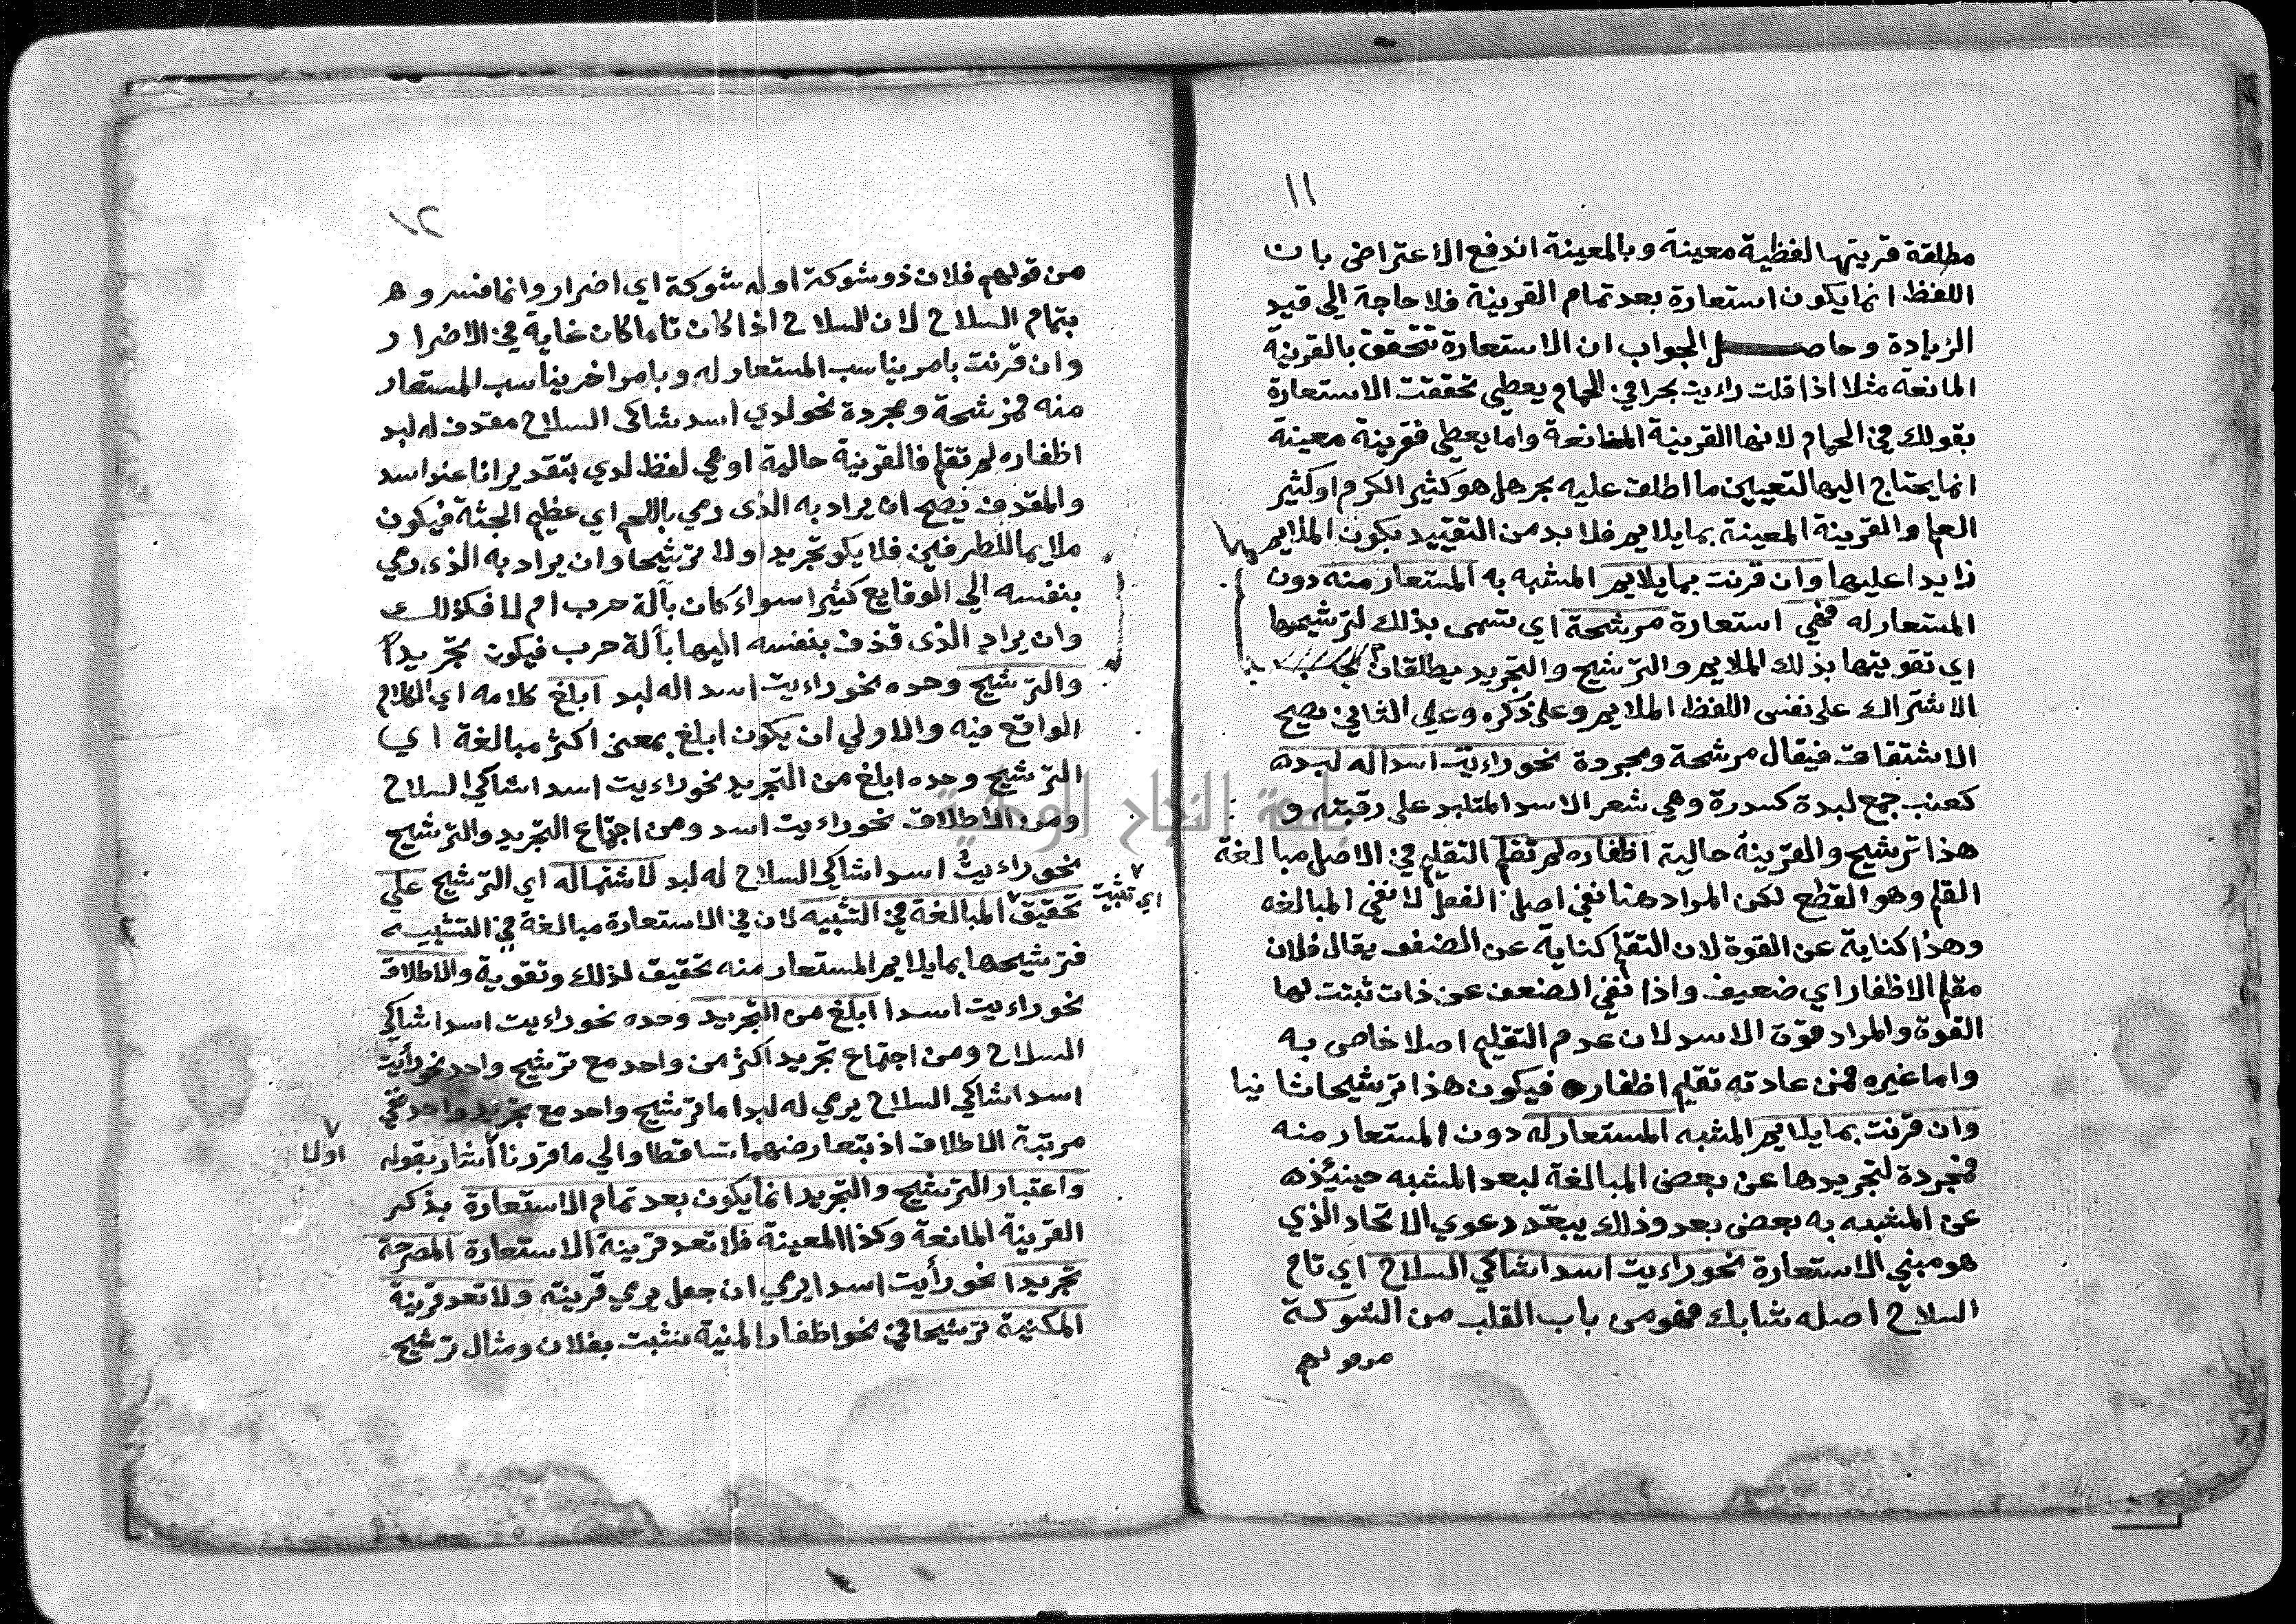 ١١
مطلقة قرينتها لفظية معينة وبالمعينة اندفع الاعتراض بان
اللفظ انما يكون استعارة بعد تمام القرينة فلا حاجة الى قيد
الزيادة وحاصل الجواب ان الاستعارة تتحقق بالقرينة
المانعة مثلا اذا قلت راءيت بحرا في الحمام يعطي تحققت الاستعارة
بقولك في الحمام لانها القرينة المانعة واما يعطي فقرينة معينة
انما يحتاج اليها لتعيين ما اطلق عليه بحر هل هو كثير الكرم او كثير
العلم والقرينة المعينة بما يلايم فلا بد من التقييد بكون الملايم
زايدا عليها وان قرنت بما يلايم المشبه به المستعار منه دون
المستعار له فهي استعارة مرشحة اي تسمى بذلك لترشيحها
اي تقويتها بذلك الملايم والترشيح والتجريد يطلقان
الاشتراك على نفس اللفظ الملايم وعلى ذكره وعلى الثاني يصح
الاشتقاق فيقال مرشحة ومجردة نحو راءيت اسدا له لبده
كعنب جمع لبدة كسدرة وهي شعر الاسد المتلبد على رقبته و
هذا ترشيح والقرينة حالية اظفاره لم تقلم التقليم في الاصل مبالغة
القلم وهو القطع لكن المراد هنا نفي اصل الفعل لا نفي المبالغه
وهذا كناية عن القوة لان التقلم كناية عن الضعف يقال فلان
مقلم الاظفار اي ضعيف واذا نفي الضعف عن ذات ثبتت لها
القوة والمراد قوة الاسد لان عدم التقليم اصلا خاص به
واما غيره فمن عادته تقلم اظفاره فيكون هذا ترشيحا ثانيا
وان قرنت بما يلايم المشبه المستعار له دون المستعار منه
فمجردة لتجريدها عن بعض المبالغة لبعد المشبه حينيئذه
عن المشبه به بعض بعد وذلك يبعّد دعوي الاتحاد الذي
هو مبني الاستعارة نحو راءيت اسدا شاكي السلاح اي تام
السلاح اصله شابك فهو من باب القلب من الشوكة
من قولهم
من قولهم فلان ذو شوكة او له شوكة اي اضرار وانما فسروه
بتمام السلاح لان السلاح اذا كان تاما كان غاية في الاضرار
وان قرنت بامر يناسب المستعار له وبامر اخر يناسب المستعار
منه فمرشحة ومجردة نحو لدي اسد شاكى السلاح مقذف له لبد
اظفاره لم تقلم فالقرينة حالية او هي لفظ لدي بتقدير انا عند اسد
والمقذف يصح ان يراد به الذى رمي باللحم اي عظيم الجثة فيكون
ملايما للطرفين فلا يكو تجريدا ولا ترشيحا وان يراد به الذى رمي
بنفسه الي الوقايع كثيرا سواء كان بآلة حرب ام لا فكذلك
وان يراد الذى قذف بنفسه اليها بآلة حرب فيكون تجريدًا
والترشيح وحده نحو راءيت اسدا له لبد ابلغ كلامه اي الكلام
الواقع فيه والاولي ان يكون ابلغ بمعنى اكثر مبالغة اي
الترشيح وحده ابلغ من التجريد نحو راءيت اسدا شاكي السلاح
ومن الاطلاق نحو راءيت اسد ومن اجتماع التجريد والترشيح
نحو راءيتُ اسدا شاكي السلاح له لبد لاشتماله اي الترشيح علي
اي تثبيت
تحقيق المبالغة في التشبيه لان في الاستعارة مبالغة في التشبيه
فترشيحها بما يلايم المستعار منه تحقيق لذلك وتقوية والاطلاق
نحو راءيت اسدا ابلغ من التجريد وحده نحو راءيت اسدا شاكي
السلاح ومن اجتماع تجريد اكثر من واحد مع ترشيح واحد نحو رأيت
اسدا شاكي السلاح يرمي له لبد اما ترشيح واحد مع تجريد واحد ففي
مرتبة الاطلاق اذ بتعارضهما تساقطا والي ما قررنا أشار بقوله
اولا
واعتبار الترشيح والتجريد انما يكون بعد تمام الاستعارة بذكر
القرينة المانعة وكذا المعينة فلا تعد قرينة الاستعارة المصرحة
تجريدا نحو رأيت اسدا يرمي ان جعل يرمي قرينة ولا تعد قرينة
المكنية ترشيحا في نحو اظفار المنية نشبت بفلان ومثال ترشيح
جامعة النجاح الوطنية